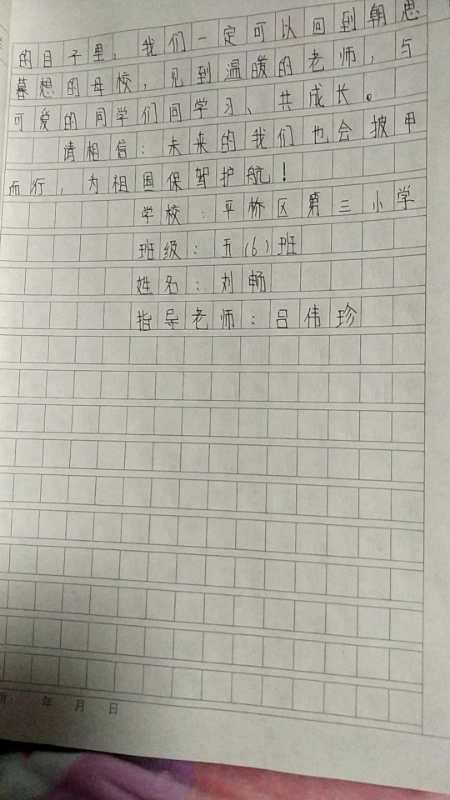 的日子里，我们一定可以回到朝思
暮想的母校，见到温暖的老师，与
可爱的同学们同学习、共成长。
请相信：未来的我们也会披甲
而行，为祖国保驾护航！
学校：平桥区第三小学
班级：五(6)班
姓名：刘畅
指导老师：吕伟珍
年 月 日